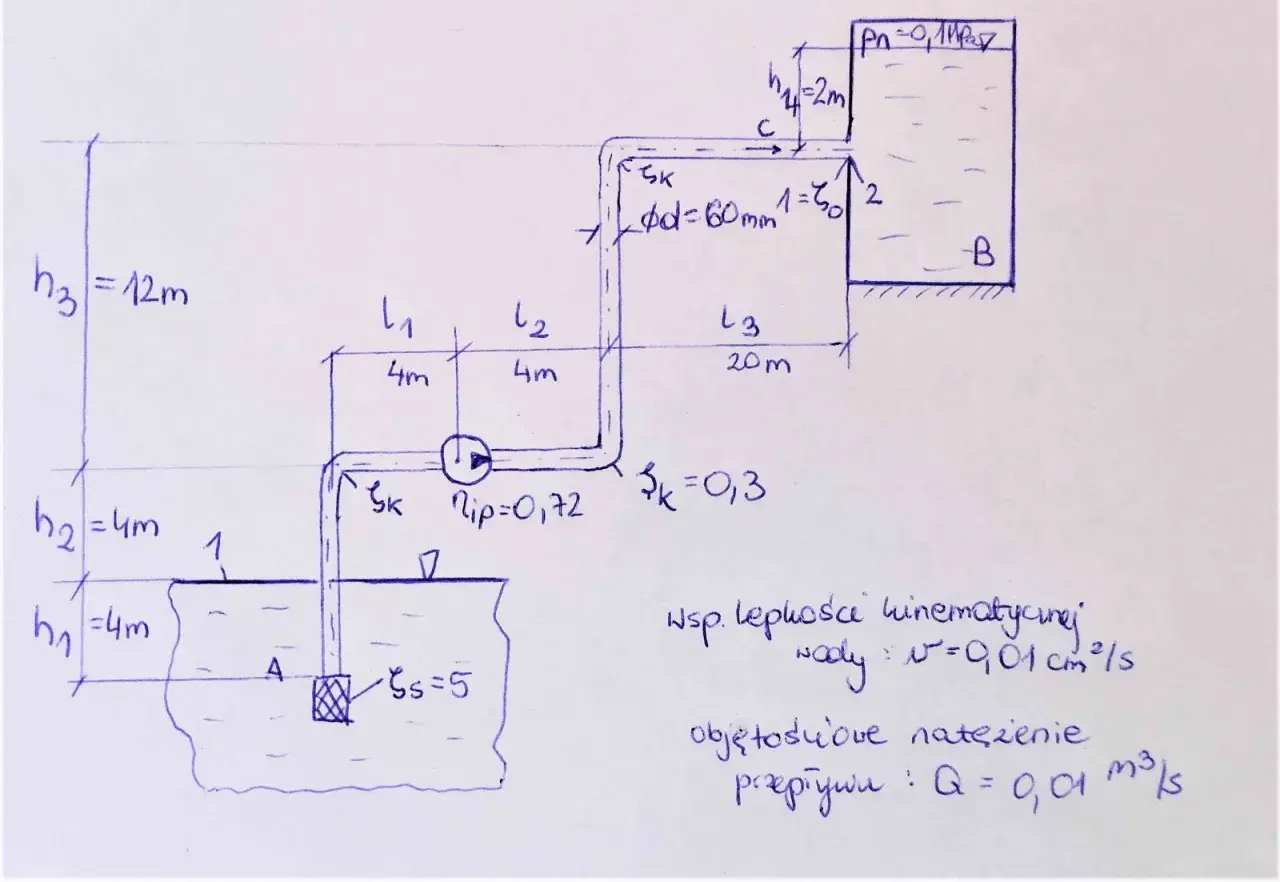 pn=0,1MPa
h4=2m
C
ζk
ϕd=60mm
1=ζo
2
B
h3=12m
l1
l2
l3
4m
4m
20m
ζk
ηip=0,72
ζk=0,3
h2=4m
1
h1=4m
A
ζs=5
wsp. lepkości kinematycznej
wody : ν=0,01 cm²/s
objętościowe natężenie
przepływu : Q = 0,01 m³/s